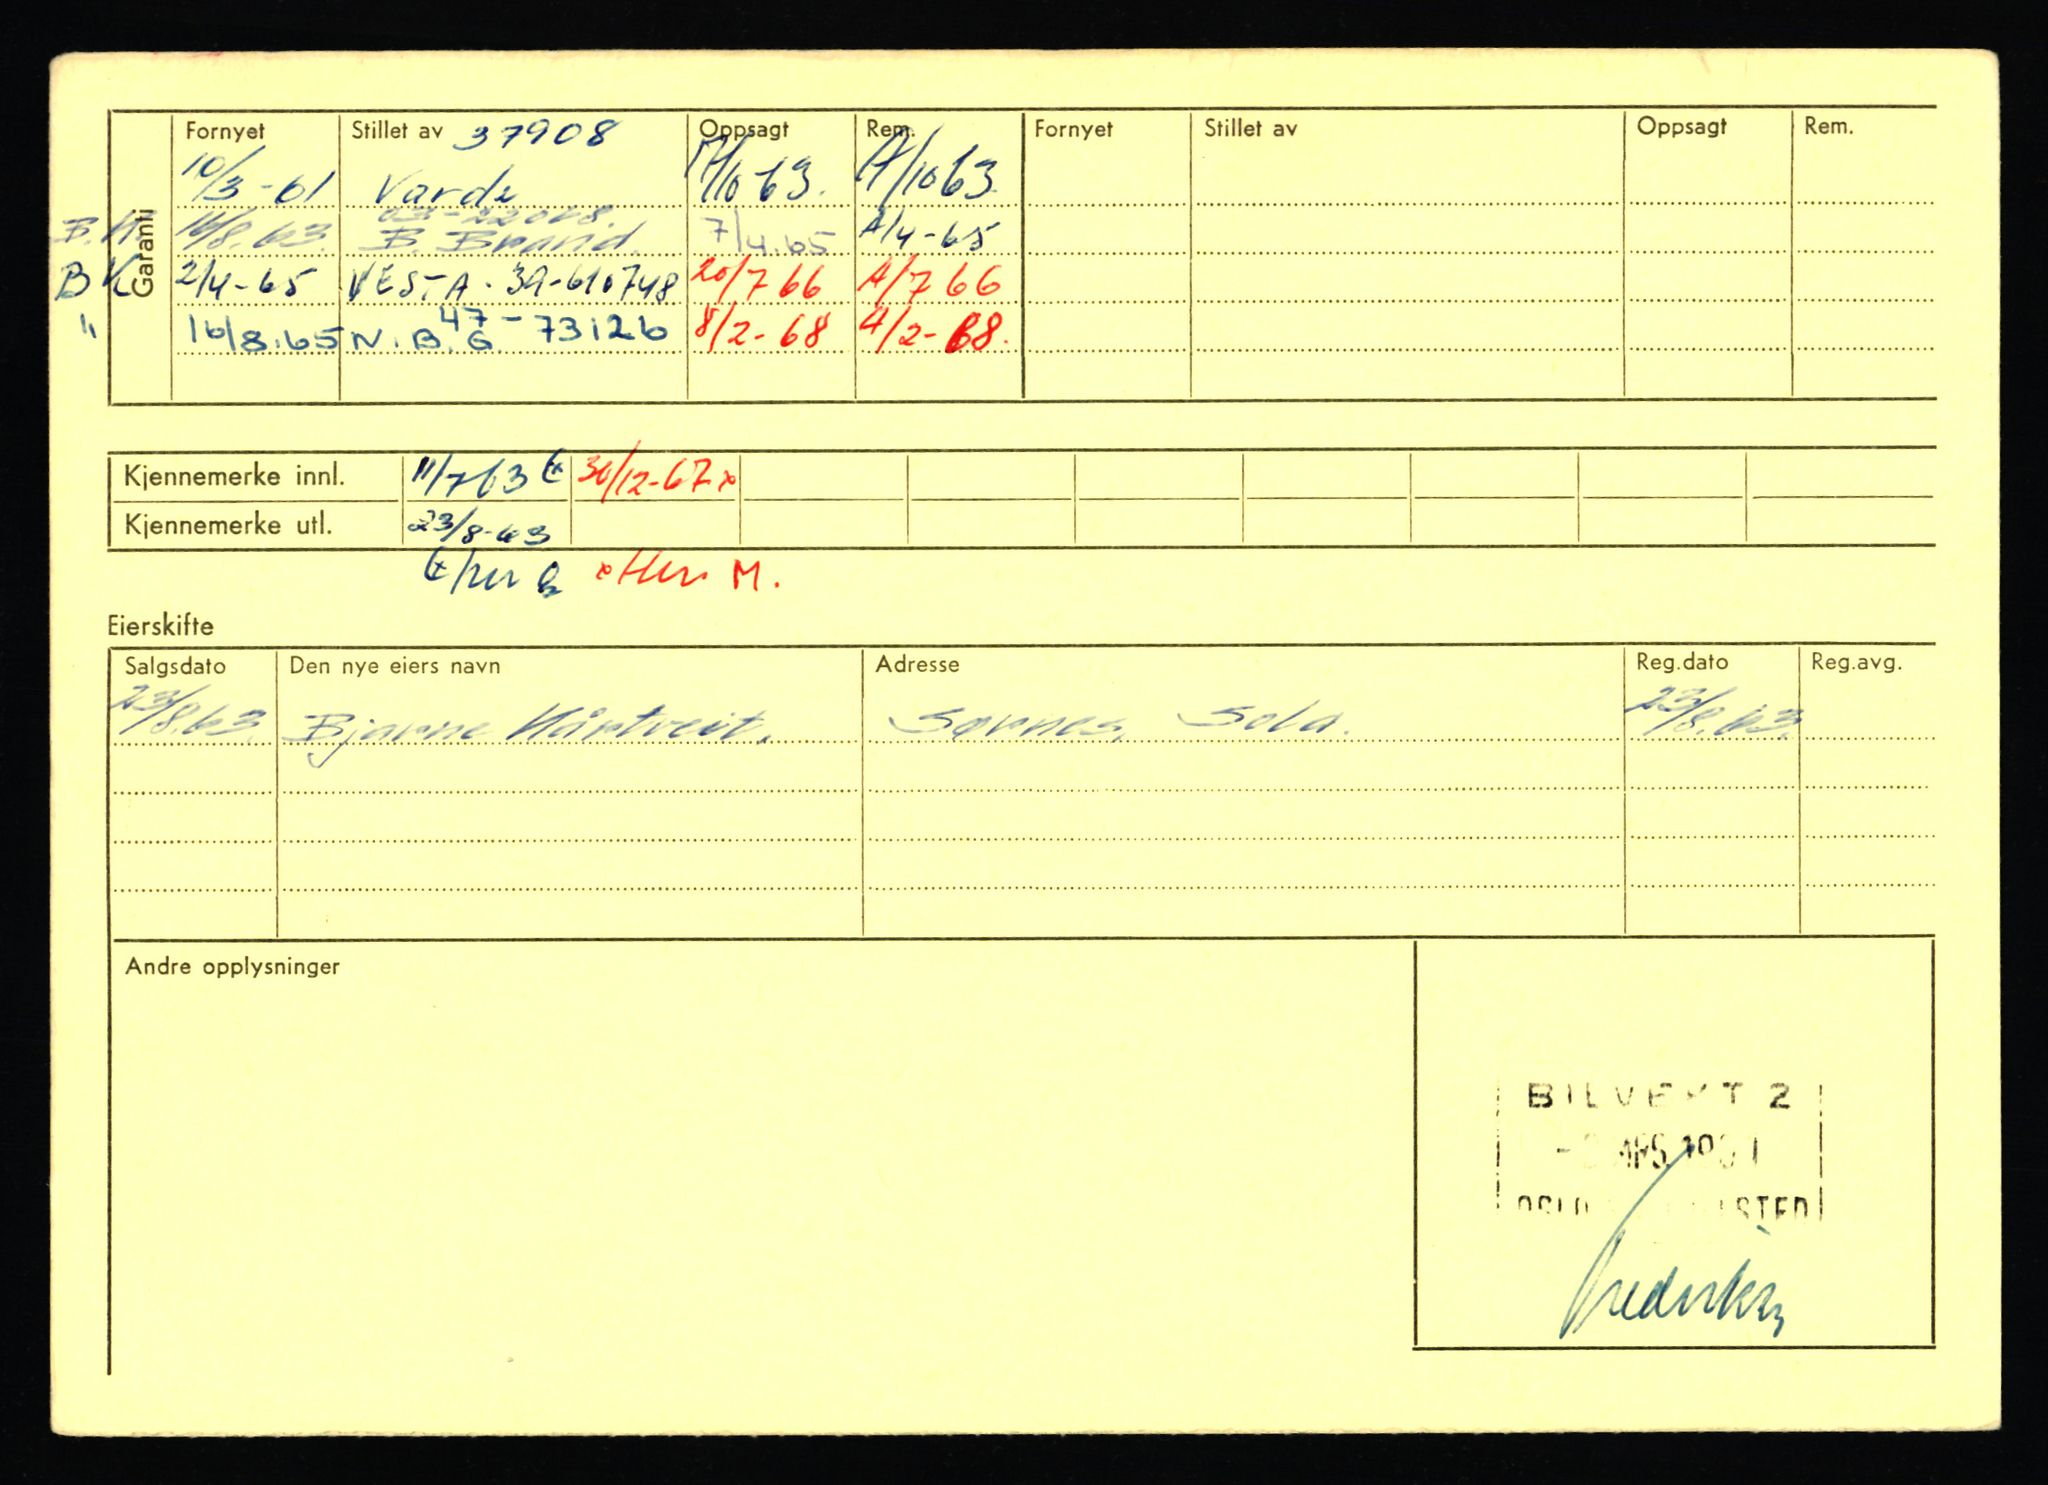 Fornyet Stillet av 37908 Oppsagt Rem. Fornyet Stillet av Oppsagt Rem.
Garanti
10/3-61 Varde 63. A/10 63
03-22018.
B. 63. B. Brand. 7/4.65 A/4-65
BK 2/4-65 VESTA. 39-610748 20/7 66 A/7 66
" 16/8.65 N.B.G. 47-73126 8/2-68 A/2-68.
Kjennemerke innl. 11/7 63 30/12-67 x
Kjennemerke utl. 23/8-63
x M.
Eierskifte
Salgsdato Den nye eiers navn Adresse Reg.dato Reg.avg.
23/8.63. Bjarne Hårtveit. Sørnes, Sola. 23/8.63.
Andre opplysninger
BILVEKT 2